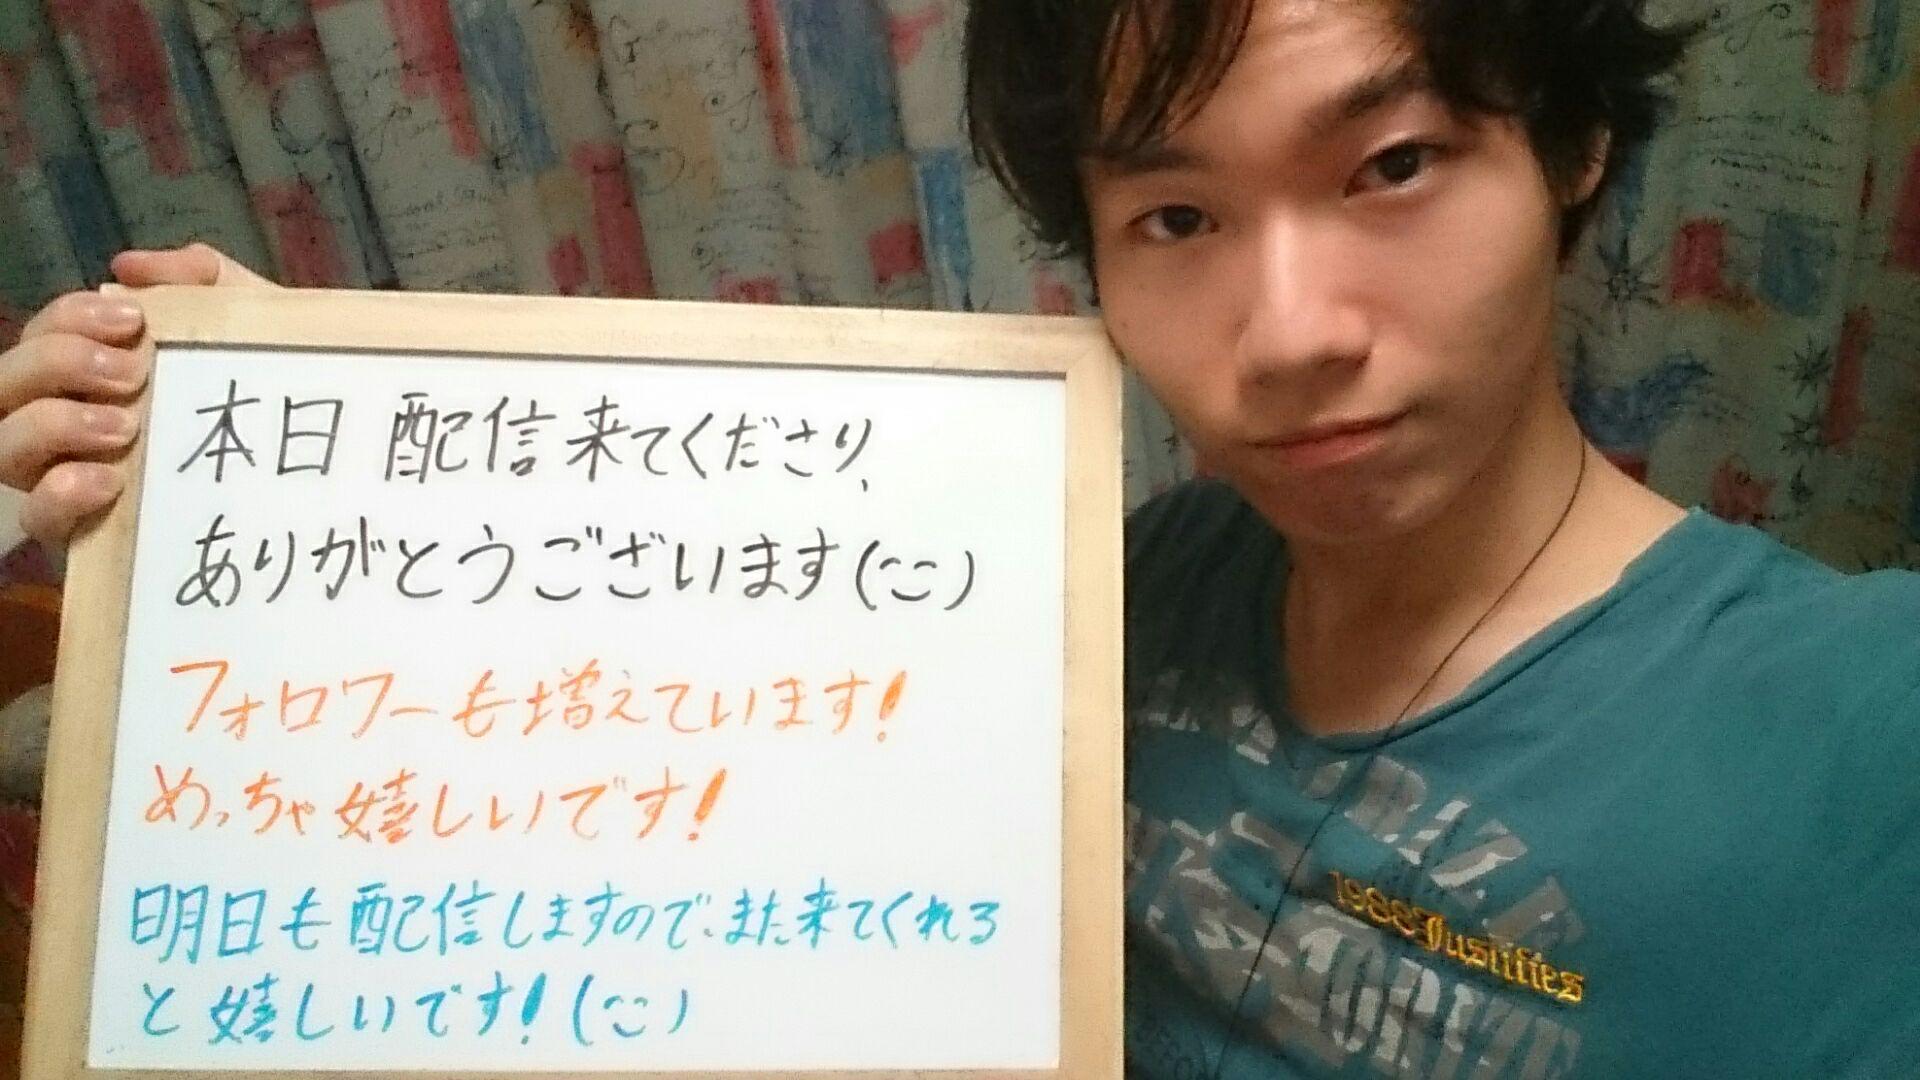 本日 配信来てくださり、
ありがとうございます(^^)
フォロワーも増えています!
めっちゃ嬉しいです!
明日も配信しますので、また来てくれる
と嬉しいです!(^^)
1988Justifies